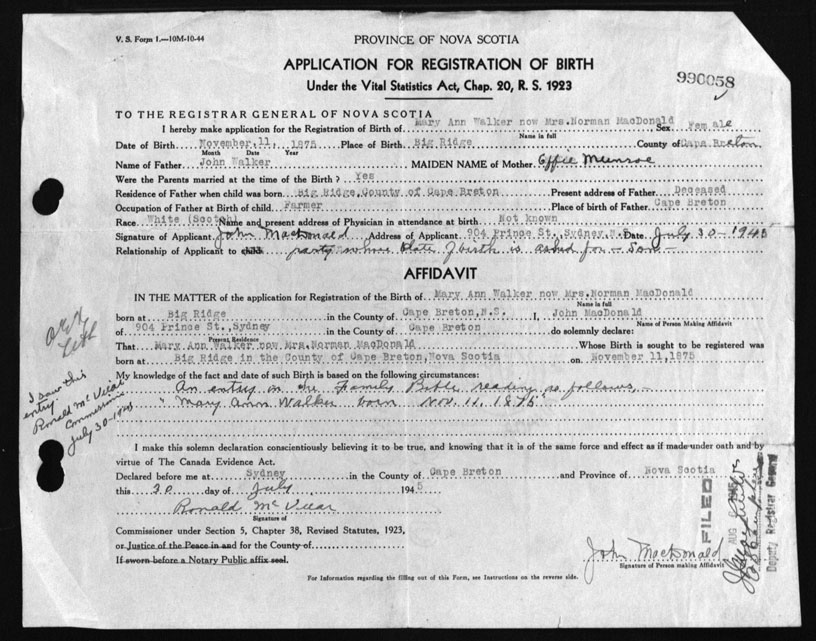 V. S. Form 1.—10M-10-44
PROVINCE OF NOVA SCOTIA
APPLICATION FOR REGISTRATION OF BIRTH
Under the Vital Statistics Act, Chap. 20, R. S. 1923
990058
TO THE REGISTRAR GENERAL OF NOVA SCOTIA
I hereby make application for the Registration of Birth of Mary Ann Walker now Mrs.Norman MacDonald Sex Female
Name in full
Date of Birth November,11, 1875 Place of Birth Big Ridge County of Cape Breton
Month Date Year
Name of Father John Walker MAIDEN NAME of Mother Effie Munroe
Were the Parents married at the time of the Birth? Yes
Residence of Father when child was born Big Ridge,County of Cape Breton Present address of Father Deceased
Occupation of Father at Birth of child Farmer Place of birth of Father Cape Breton
Race White (Scotch) Name and present address of Physician in attendance at birth Not known
Signature of Applicant John MacDonald Address of Applicant 904 Prince St.,Sydney,N.S. Date July 30-1945
Relationship of Applicant to child party whose date of birth is asked for - Son -
AFFIDAVIT
IN THE MATTER of the application for Registration of the Birth of Mary Ann Walker now Mrs.Norman MacDonald
Name in full
born at Big Ridge in the County of Cape Breton,N.S. I, John MacDonald
Name of Person Making Affidavit
of 904 Prince St.,Sydney in the County of Cape Breton do solemnly declare:
Present Residence
That Mary Ann Walker now Mrs.Norman MacDonald Whose Birth is sought to be registered was
born at Big Ridge in the County of Cape Breton,Nova Scotia on November 11,1875
My knowledge of the fact and date of such Birth is based on the following circumstances:
An entry in the Family Bible reading as follows,-
"Mary Ann Walker born Nov. 11, 1875"
I saw this
entry.
Ronald McVicar
Commissioner
July 30-1945
I make this solemn declaration conscientiously believing it to be true, and knowing that it is of the same force and effect as if made under oath and by
virtue of The Canada Evidence Act.
Declared before me at Sydney in the County of Cape Breton and Province of Nova Scotia
this 30 day of July 1945
Ronald McVicar
Signature of
Commissioner under Section 5, Chapter 38, Revised Statutes, 1923,
or Justice of the Peace in and for the County of
If sworn before a Notary Public affix seal.
John MacDonald
Signature of Person making Affidavit
FILED
AUG 1945
Deputy Registrar General
For Information regarding the filling out of this Form, see Instructions on the reverse side.